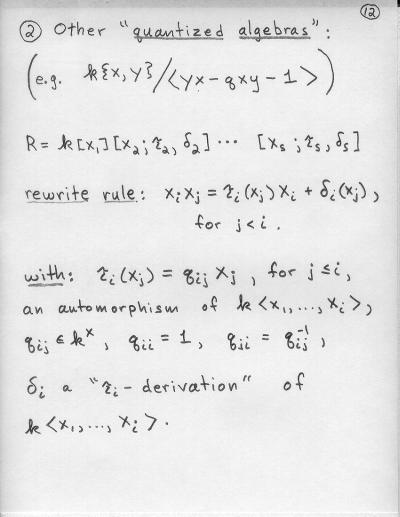 12
② Other "quantized algebras":
(e.g. k{x,y}/<yx-qxy-1>)
R = k[x₁][x₂;τ₂,δ₂]⋯ [xₛ;τₛ,δₛ]
rewrite rule: xᵢxⱼ = τᵢ(xⱼ)xᵢ + δᵢ(xⱼ),
for j<i.
with: τᵢ(xⱼ) = qᵢⱼ xⱼ, for j≤i,
an automorphism of k<x₁,...,xᵢ>,
qᵢⱼ ∈ kˣ, qᵢᵢ = 1, qⱼᵢ = qᵢⱼ⁻¹,
δᵢ a "τᵢ-derivation" of
k<x₁,...,xᵢ>.